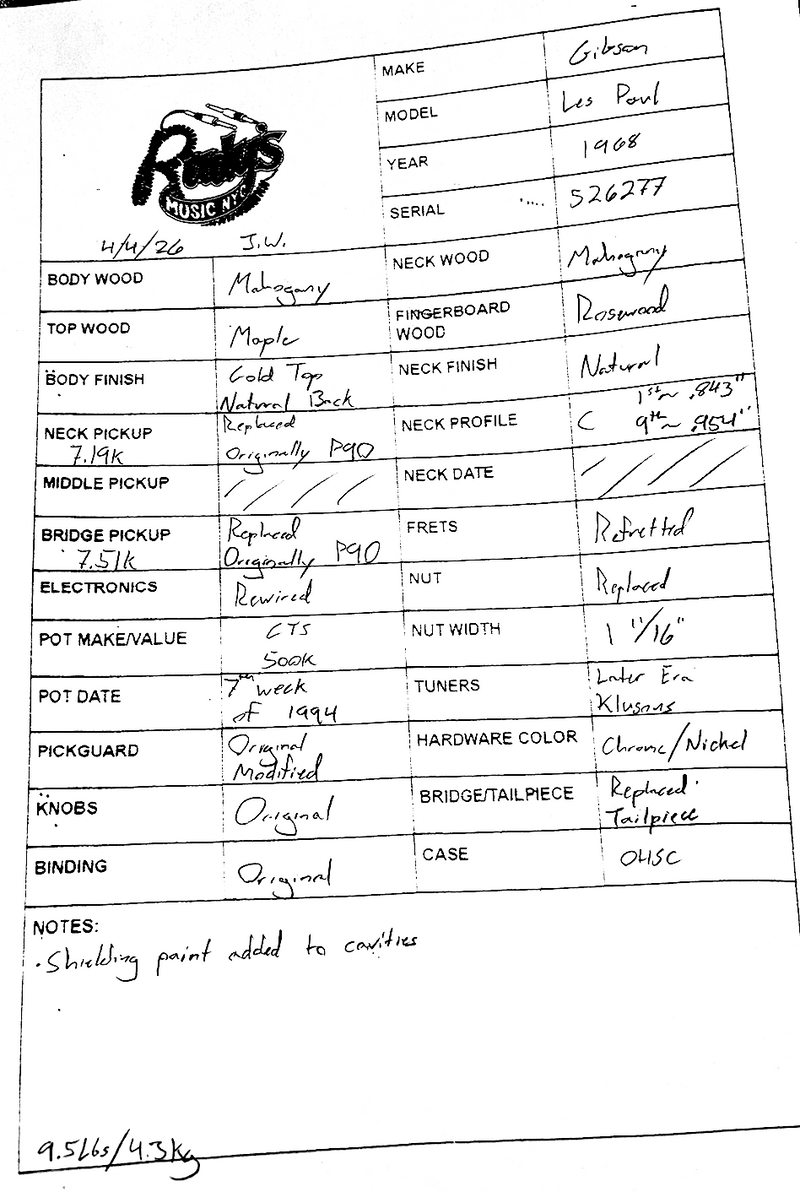 MAKE Gibson
MODEL Les Paul
YEAR 1968
SERIAL 526277
Rudy's
MUSIC NYC
4/4/26 J.W.
BODY WOOD Mahogany
NECK WOOD Mahogany
TOP WOOD Maple
FINGERBOARD WOOD Rosewood
BODY FINISH Gold Top
Natural Back
NECK FINISH Natural
NECK PICKUP
7.19K
Replaced
Originally P90
NECK PROFILE C 1st ~ .843"
9th ~ .954"
MIDDLE PICKUP
NECK DATE
BRIDGE PICKUP
7.51K
Replaced
Originally P90
FRETS Refretted
ELECTRONICS Rewired
NUT Replaced
POT MAKE/VALUE CTS
500K
NUT WIDTH 1 11/16"
POT DATE 7th week
of 1994
TUNERS Later Era
Klusons
PICKGUARD Original
Modified
HARDWARE COLOR Chrome/Nickel
KNOBS Original
BRIDGE/TAILPIECE Replaced
Tailpiece
BINDING Original
CASE OHSC
NOTES:
• Shielding paint added to cavities
9.5Lbs/4.3Kg